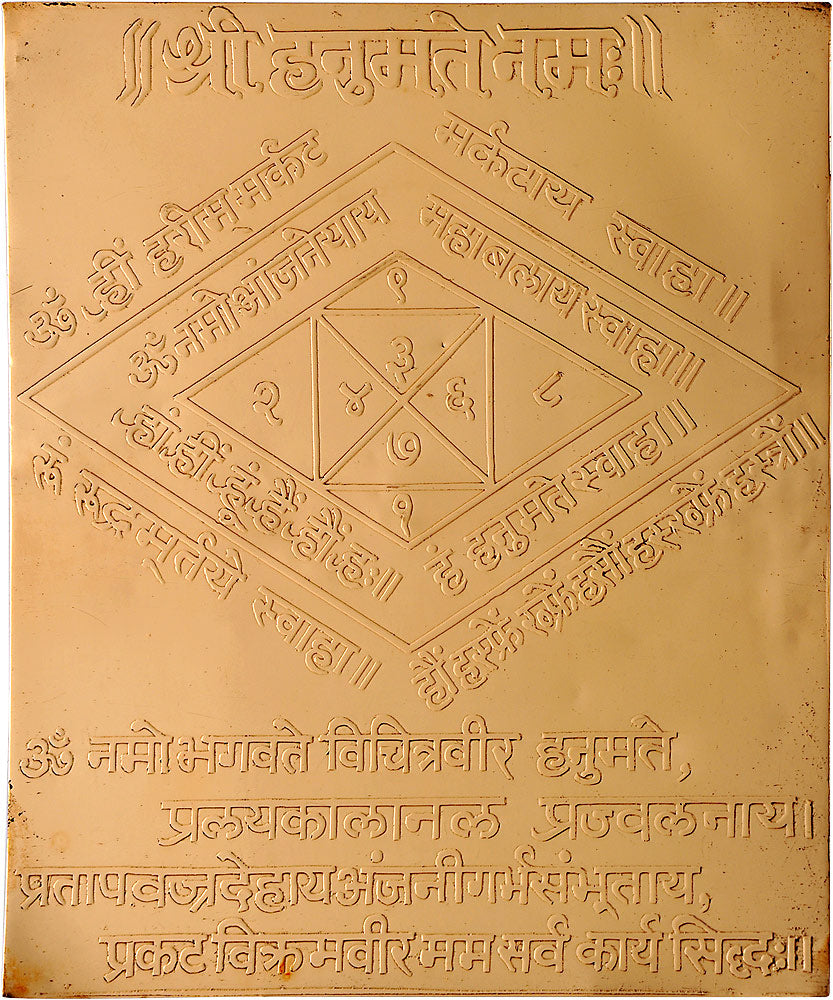 ॥ श्री हनुमते नमः ॥
ॐ ह्रीं हरीम् मर्कट मर्कटाय स्वाहा ॥
ॐ नमो आंजनेयाय महाबलाय स्वाहा ॥
९
३
२ ४ ६ ८
७
१
ह्रां ह्रीं ह्रूं ह्रैं ह्रौं ह्रः ॥
हं हनुमते स्वाहा ॥
रूं रूद्र मूर्तये स्वाहा ॥
ॐ नमो भगवते विचित्रवीर हनुमते,
प्रलयकालानल प्रज्वलनाय।
प्रतापवज्रदेहाय अंजनीगर्भसंभूताय,
प्रकट विक्रमवीर मम सर्व कार्य सिद्धः॥